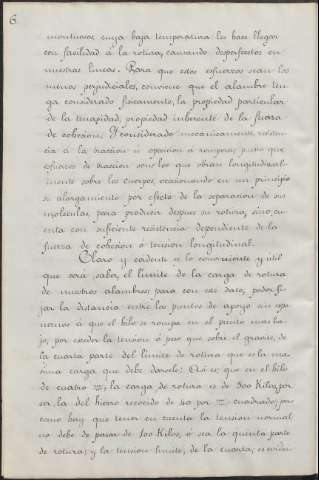 6
montuosos, cuya baja temperatura les hace llegar
con facilidad á la rotura, causando desperfectos en
nuestras lineas. Para que estos esfuerzos sean los
menos perjudiciales, conviene que el alambre ten-
ga considerado fisicamente, la propiedad particular
de la tenacidad, propiedad inherente de la fuerza
de cohesion. Y considerado mecanicamente, resisten-
cia á la traccion u oposicion a romperse; puesto que
esfuerzos de traccion son los que obran longitudinal-
mente sobre los cuerpos, ocasionando en un principio
su alargamiento por efecto de la separacion de sus
moleculas, para producir despues su rotura, sino cu-
enta con suficiente resistencia dependiente de la
fuerza de cohesion o tension longitudinal.
Claro y evidente es lo conveniente y util
que será saber, el limite de la carga de rotura
de nuestros alambres; para con este dato, poder fi-
jar la distancia entre los puntos de apoyo sin espo-
nernos á que el hilo se rompa en el punto mas ba-
jo, por esceder la tension ó peso que sobre el gravite, de
la cuarta parte del limite de rotura que es la ma-
sima carga que debe darsele. Asi es; que en el hilo
de cuatro m/m, la carga de rotura es de 500 Kilos, por
ser la del hierro recocido de 40 por m/m cuadrado; pero
como hay que tener en cuenta la tension normal
no debe de pasar de 100 Kilos, ó sea la quinta parte
de rotura; y la tension limite, de la cuarta, es eviden-